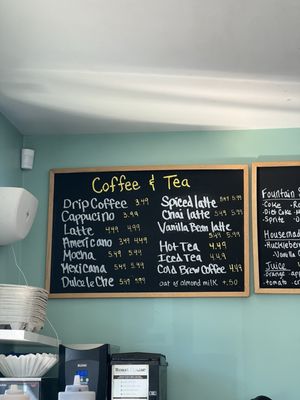 Coffee & Tea
Drip Coffee 3.49
Cappucino 3.99
Latte 4.49 4.99
Americano 3.49 4.49
Mocha 5.49 5.99
Mexicana 5.49 5.99
Dulce de Che 5.49 5.99
Spiced latte 5.49 5.99
Chai latte 5.49 5.99
Vanilla Bean latte
5.49 5.99
Hot Tea 4.49
Iced Tea 4.49
Cold Brew Coffee 4.49
oat or almond milk +.50
Fountain
-Coke
-Diet Coke
-Sprite
Housemade
-Huckleberry
-Vanilla
Juice
-orange
-tomato